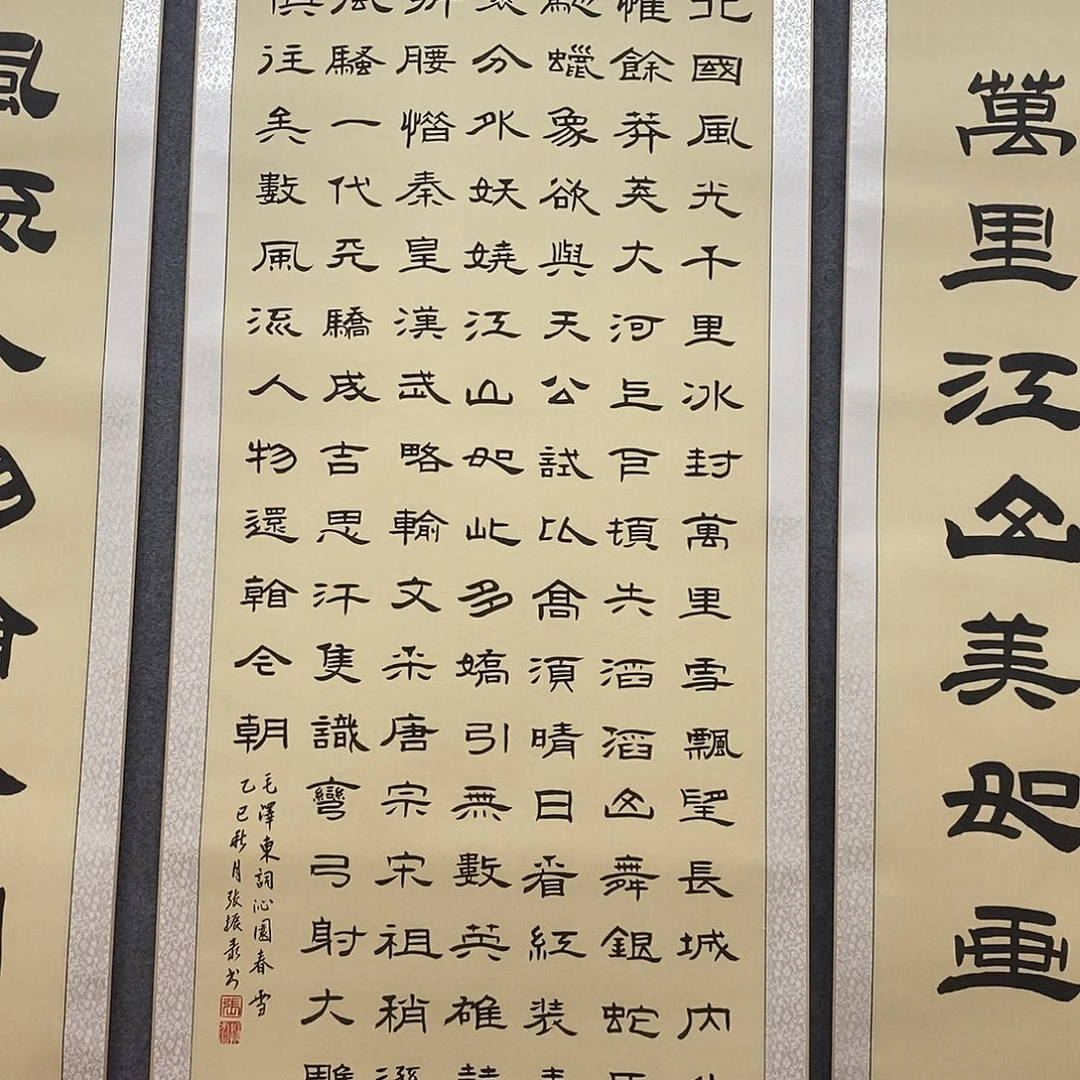 萬里江山美如画
北國風光千里冰封萬里雪飄望長城内外
惟餘莽莽大河上下頓失滔滔山舞銀蛇原
馳蠟象欲與天公試比高須晴日看紅装素
裹分外妖嬈江山如此多嬌引無數英雄競
折腰惜秦皇漢武略輸文采唐宗宋祖稍遜
風騷一代天驕成吉思汗隻識彎弓射大雕
俱往矣數風流人物還看今朝
毛澤東詞沁園春雪
乙巳秋月張振书
張
風流人物看今朝